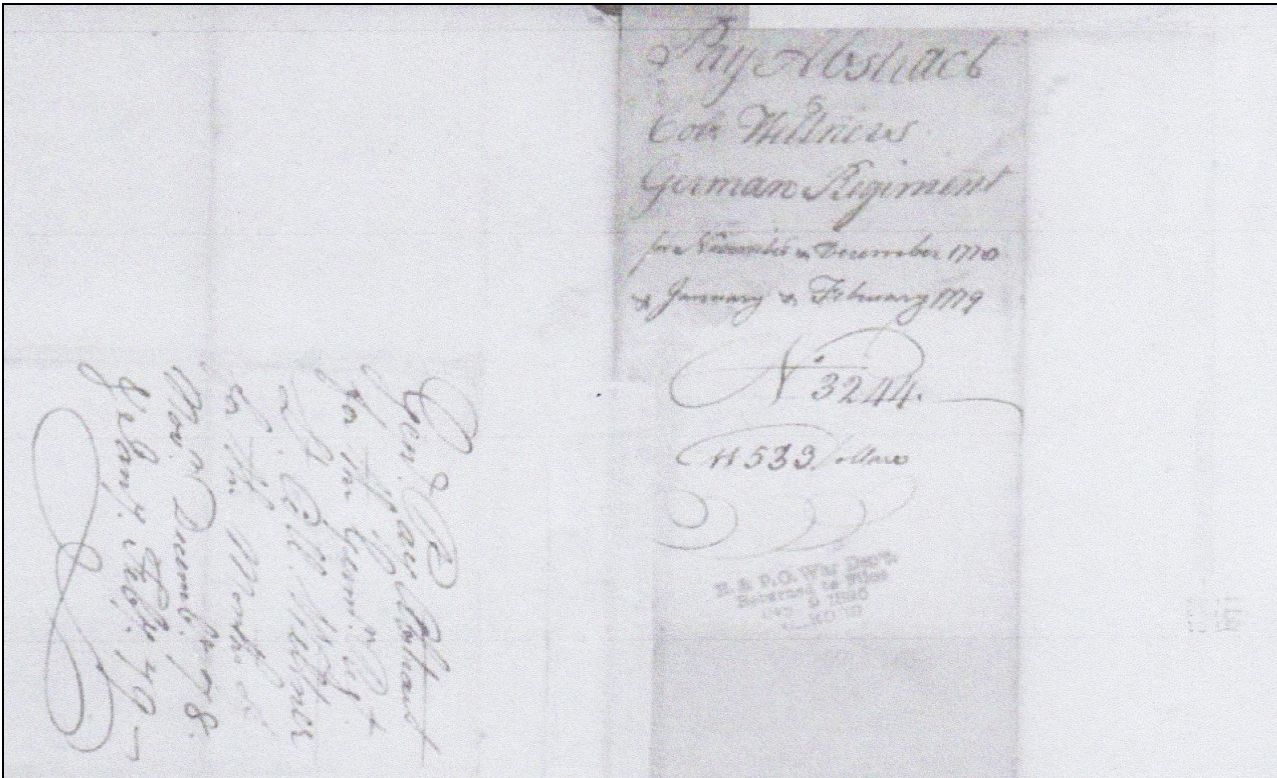 Pay Abstract
Colo Weltners
German Regiment
for November & December 1778
& January & February 1779
No 3244.
Dollars
R. & P. O. War Dep't
Returned to Files
1886
Genl Pay Abstract
for the Germn Regt
Coll. Weltner
for the Months of
Novr. & Decembr. 78.
& Jany. & Feby. 79